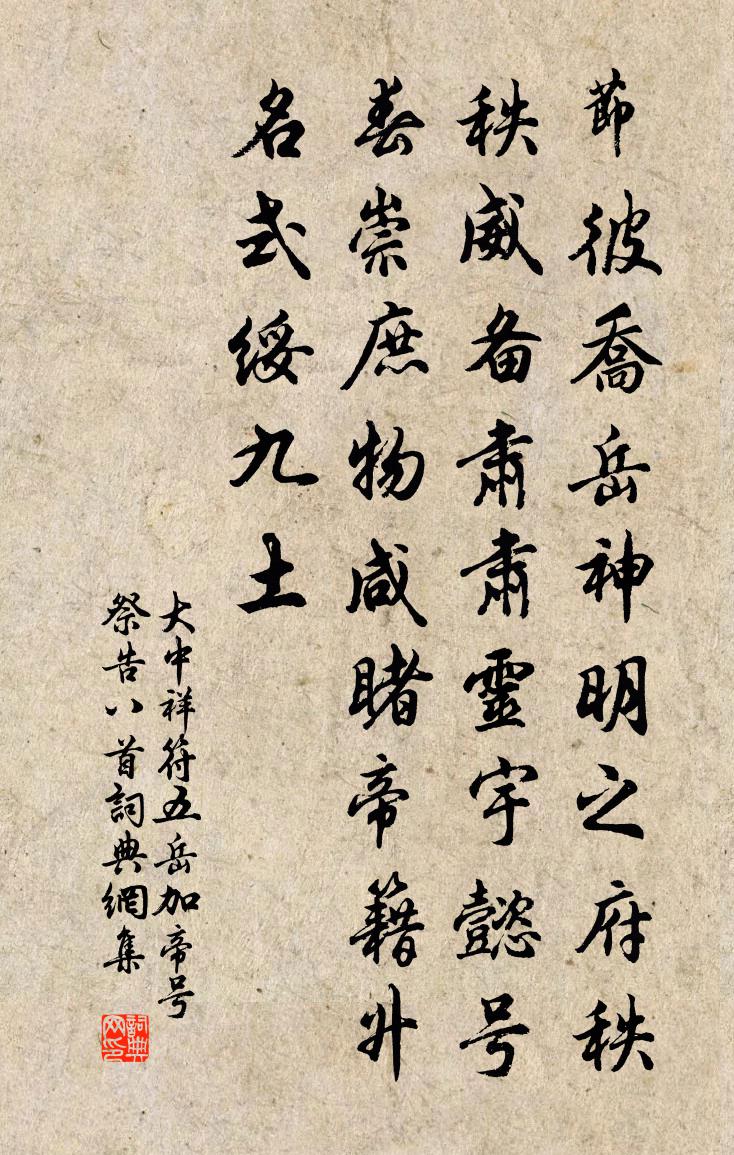 節彼喬岳神明之府秩
秩威备肅肅靈宇懿号
春崇庶物咸睹帝籍升
名式綏九土
大中祥符五岳加帝号
祭告八首詞典網集
詞典网印